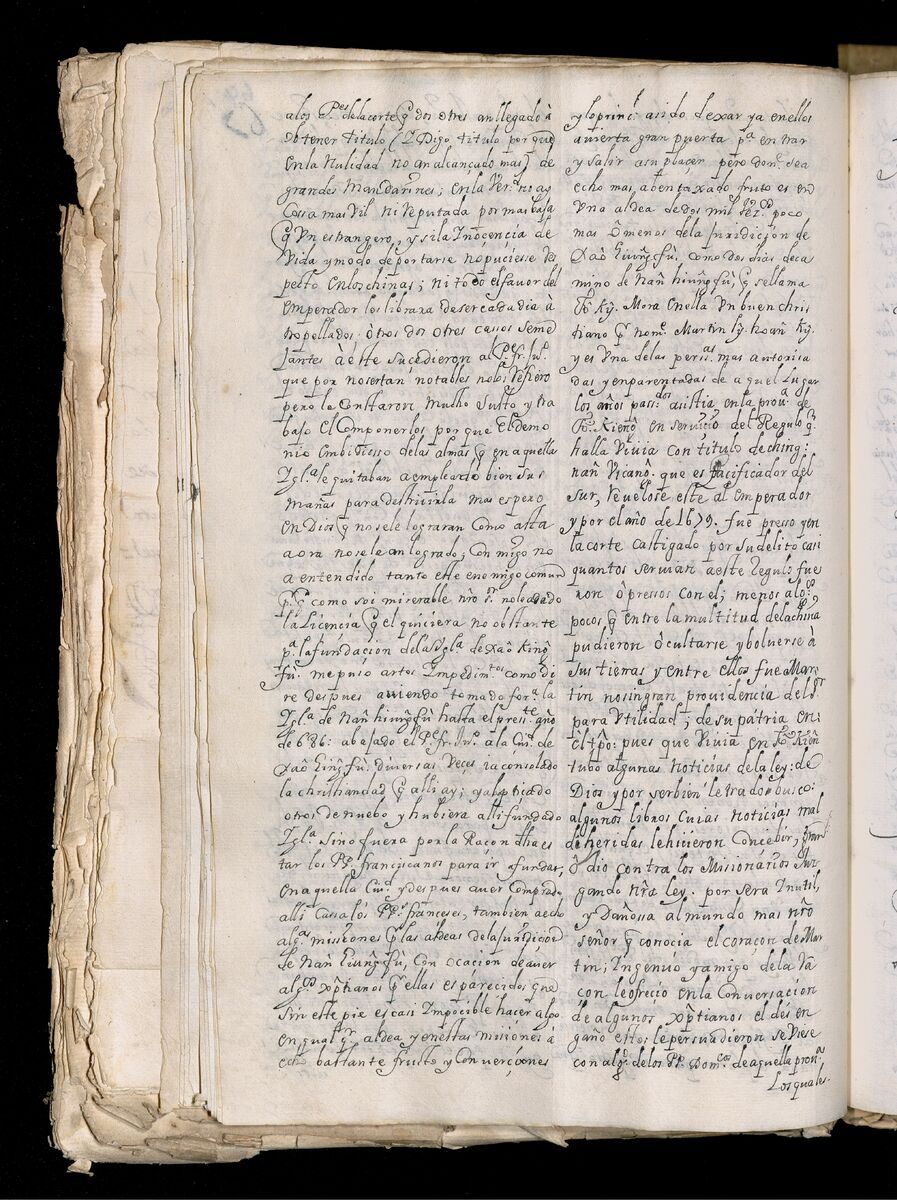 alos P.es delacorte q̃ dos otres anllegado à
obtener titulo (Y Digo titulo por que
enla Nulidad no analcançado mas) de
grandes Mandarines; enla Ver.d no ay
Cossa mas Vil ni Reputada por mas baja
q̃ Vn estrangero, y sila Inocencia de
Vida y modo deportarse nopuciesse Res
pecto enloschinas; ni todo elfavor del
emperador los librara desercadadia à
tropellados. òtros dos otres cassos Seme
Jantes à este sucedieron al P.e fr. Ju.o
que por noser tan notables nolos Refiero
pero le Constaron Mucho Susto y tra
bajo el Componerlos por que el Demo
nio embidiosso delas almas q̃ en aquella
Igl.a le quitaban aempleado bien sus
mañas para destruirla mas espero
en Dios q̃ nosele lograran Como asta
aora nosele anlogrado; Con migo no
a entendido tanto este enemigo comun
p.r q̃ como soi miserable nr̃o s.r noleadado
la Licencia q̃ el quiciera no obstante
p.a la fundacion dela Igl.a de Xaô King
fù. mepuso artos Impedim.tos como di
re despues aviendo tomado for.a la
Igl.a de Nañ hiung fù hasta el pres.te año
de 686: abajado el P.e fr. Ju.o ala Ciu.d de
Xaô Kiung fù: diversas Veçes ia consolado
la christiandad q̃ alli ay; yabaptiçado
otros denuebo y hubiera alli fundado
Igl.a Sino fuera por la Racon dhaes
tar los PP. franciscanos para ir afundar,
en aquella Ciu.d y despues aver Comprado
alli Cassa lós PP.s franceses, tambien aecho
alg.as missiones q̃ las aldeas dela Juridicion
de Nañ Kiung fù, Con ocacion de aver
alg.os xp̃tianos q̃ ellas esparecidos que
Sin este pie es casi Impocible hacer algo
en qual q.r aldea y en estas misiones à
echo bastante fruto y Converciones
y loprinc.l asido dexar ya enellos
avierta gran puerta p.a entrar
y Salir asu plaçer pero don.e sea
echo mas abentaxado fruto es en
Vna aldea dedos mil Vez.os poco
mas ô menos dela Juridicion de
Xaô Kiung fù, como dos dias deca
mino de Nañ hiung fù, q̃ se llama
Fô Kỳ. Mora enella Vn buen chris
tiano q̃ nom.e Martin ly. hoañ Kỳ.
y es Vna delas pers.as mas autorisa
das y enparentadas de aquel Lugar
los años pass.dos asistia enla prou.a de
Fô Kieñ en servicio del Regulo q̃
halla Vivia con titulo deching:
nañ Vicanô. que es Pacificador del
Sur, Revelose este al Emperador
y por el año de 1679. fue presso y en
la corte castigado por su delito casi
quantos servian aeste Regulo fue
ron ò pressos con el; menos alg.os
pocos q̃ entre la multitud delachina
pudieron ôcultarse y bolverse à
Sus tierras y entre ellos fue Mar
tin no singran providencia del S.r
para Vtilidad; de su pàtria en:
el tp̃o: pues que Vivia en Fô Kieñ
tubo algunas noticias dela ley: de
Dios y por serbien letrado busco:
algunos libros Cuias noticias mal
deheridas lehicieron Concebir, gran
ôdio contra los Missionarios Juz
gando nr̃a ley. por sera Inutil,
y Dañossa al mundo mas nr̃o
señor q̃ conocia el coraçon de Mar
tin; Ingenuo yamigo dela Ra
con leofreciò enla Conversacion
de algunos xp̃tianos el desen
gaño estos le persuadieron se Viese
con alg.o delos PP. Dom.cos de aquella prou.a
Losquales.